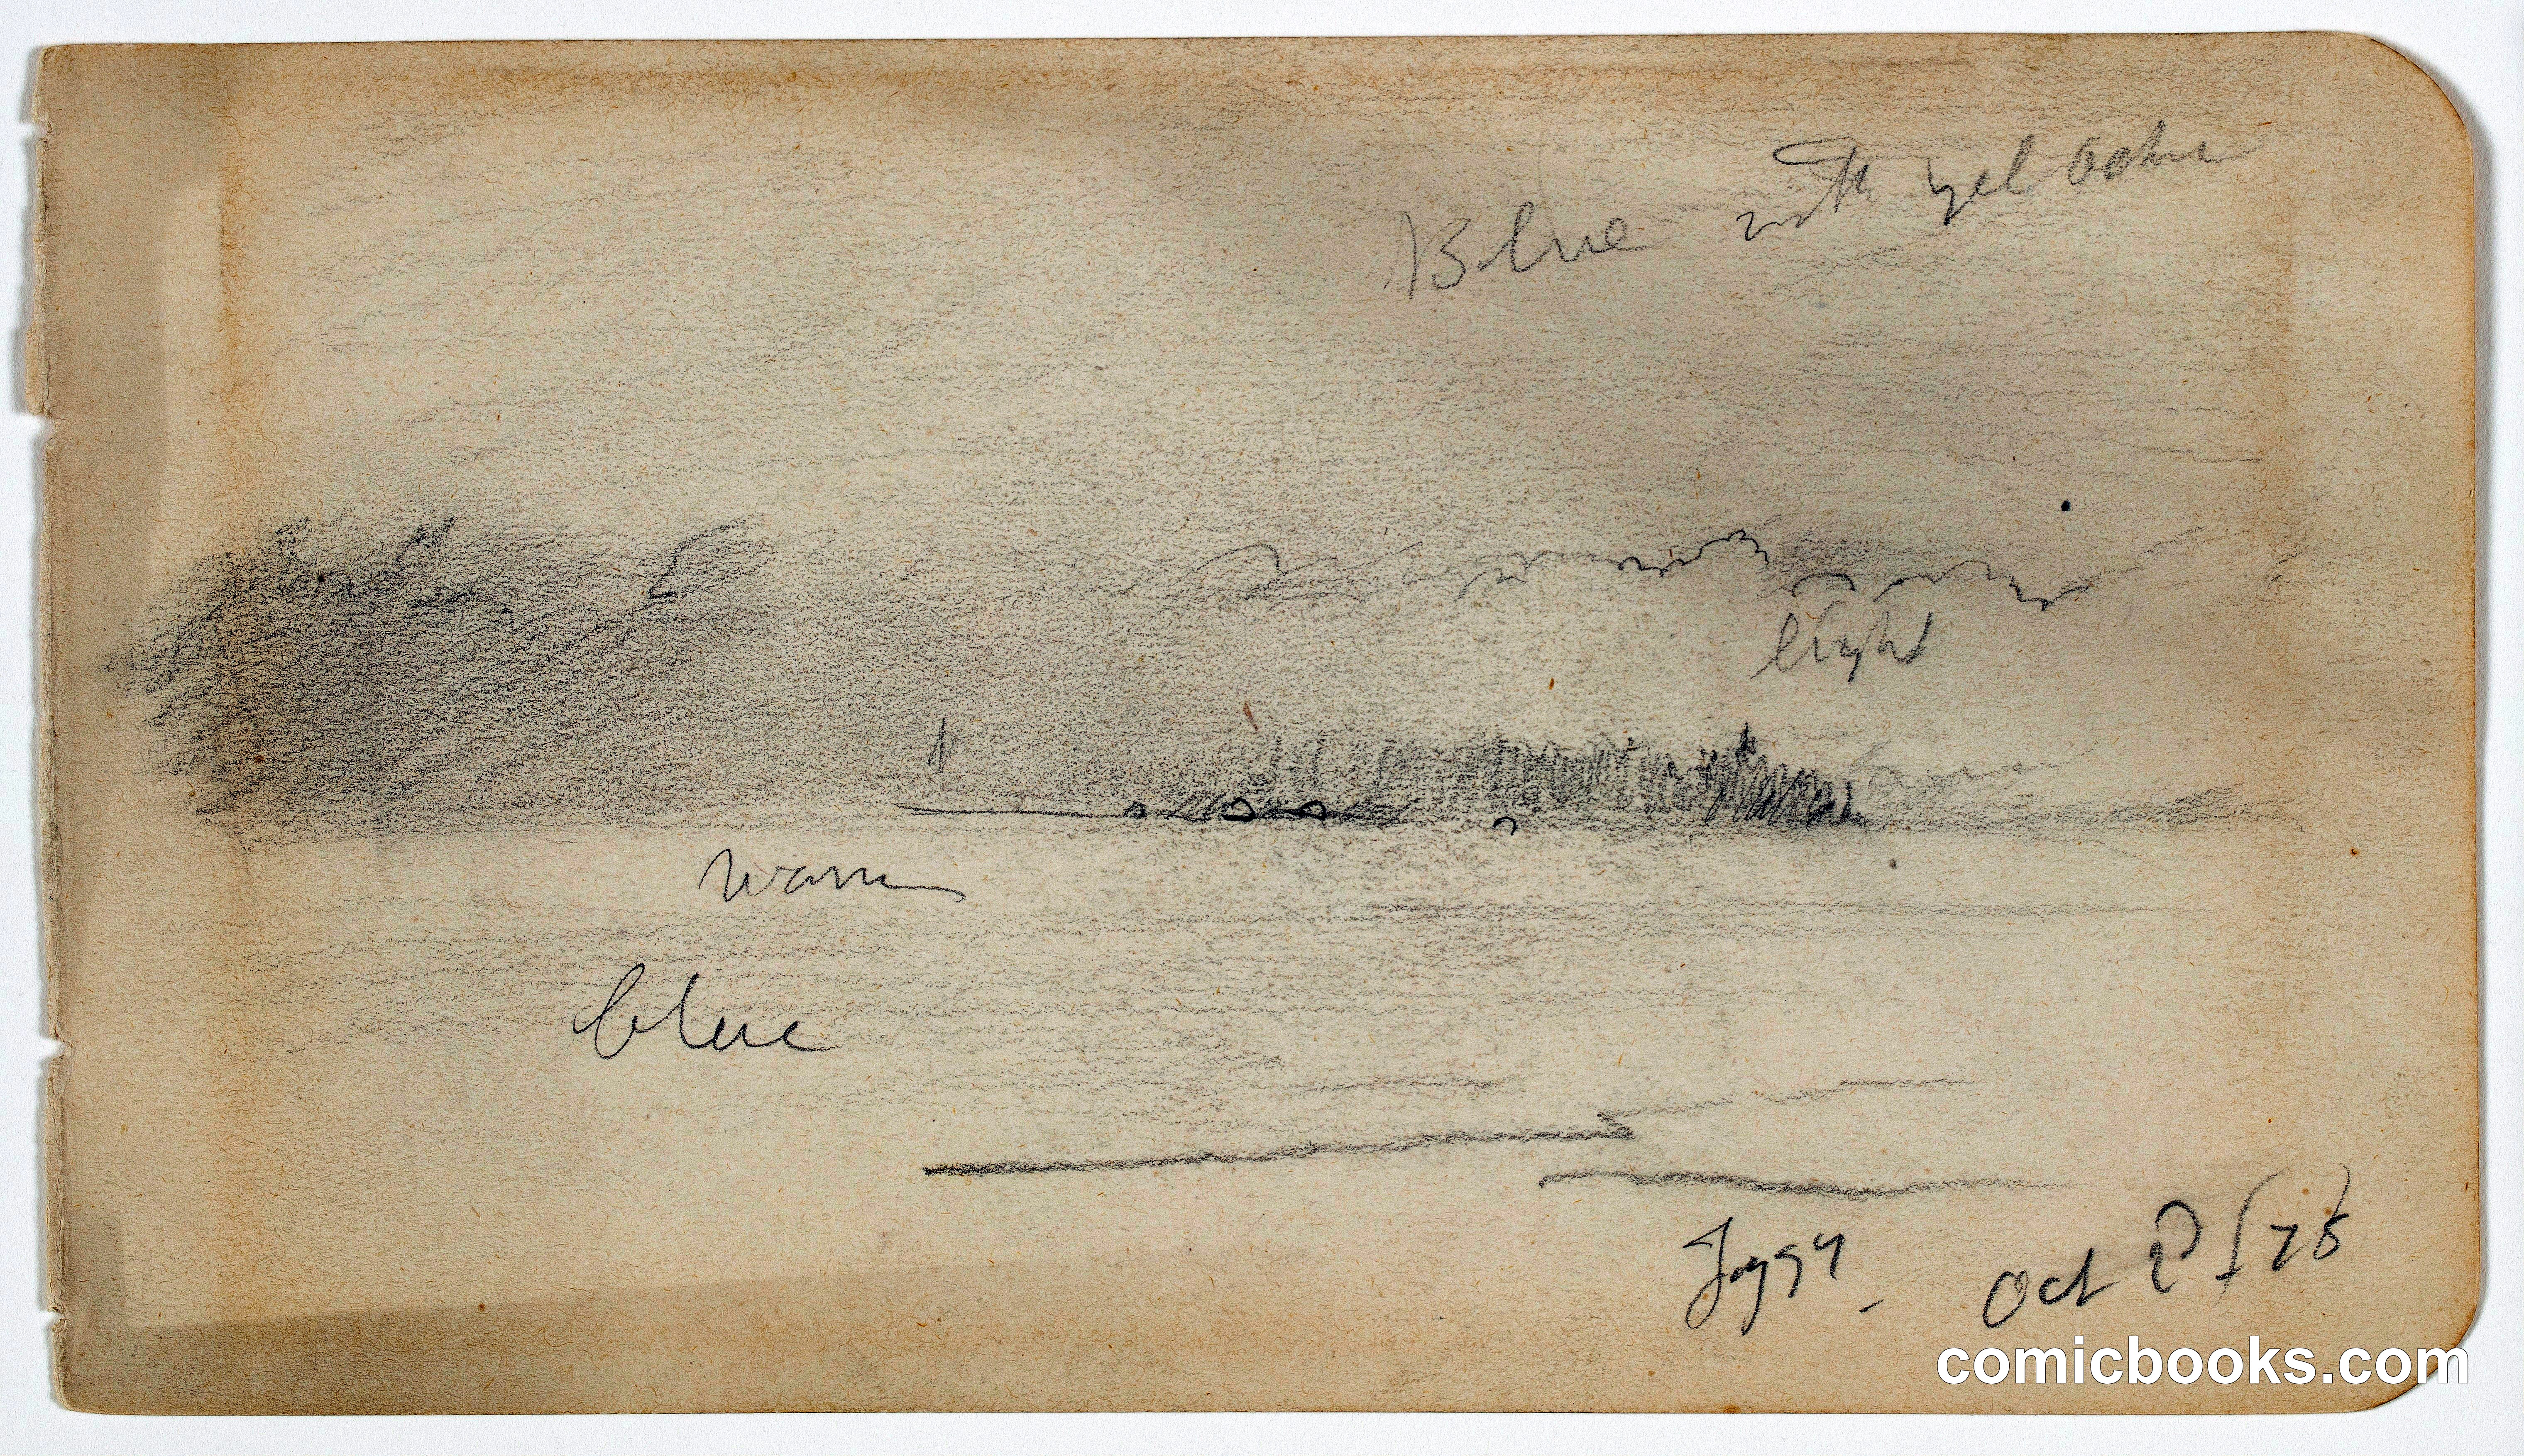 Blue with yel ochre
light
warm
blue
Foggy - Oct 2 [78]
comicbooks.com